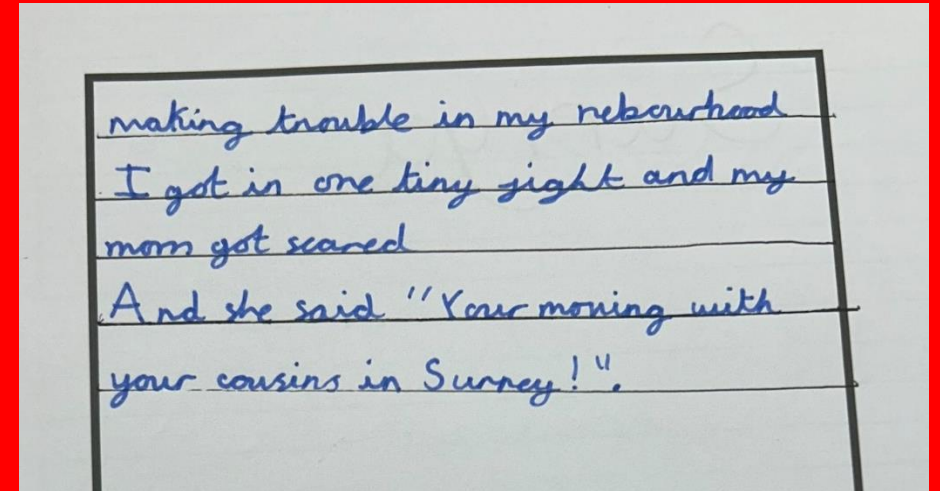 making trouble in my rebourhood
I got in one tiny fight and my
mom got scared
And she said "Your moving with
your cousins in Surrey!".